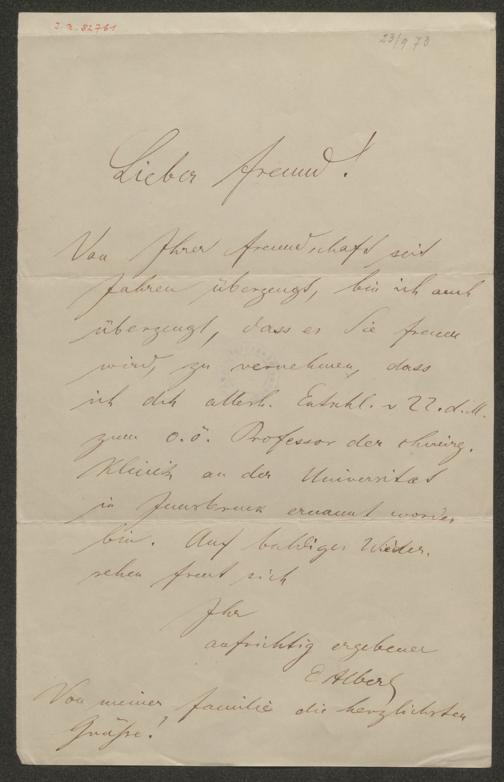 I. N. 82761
23/9 73
Lieber Freund!
Von Ihrer Freundschaft seit
Jahren überzeugt, bin ich auch
überzeugt, dass es Sie freuen
wird, zu vernehmen, dass
ich dch allerh. Entschl. v 22. d. M.
zum o. ö. Professor der chirurg.
Klinik an der Universität
in Innsbruck ernannt worden
bin. Auf baldiges Wieder-
sehen freut sich
Ihr
aufrichtig ergebener
E Albert
Von meiner Familie die herzlichsten
Grüsse!